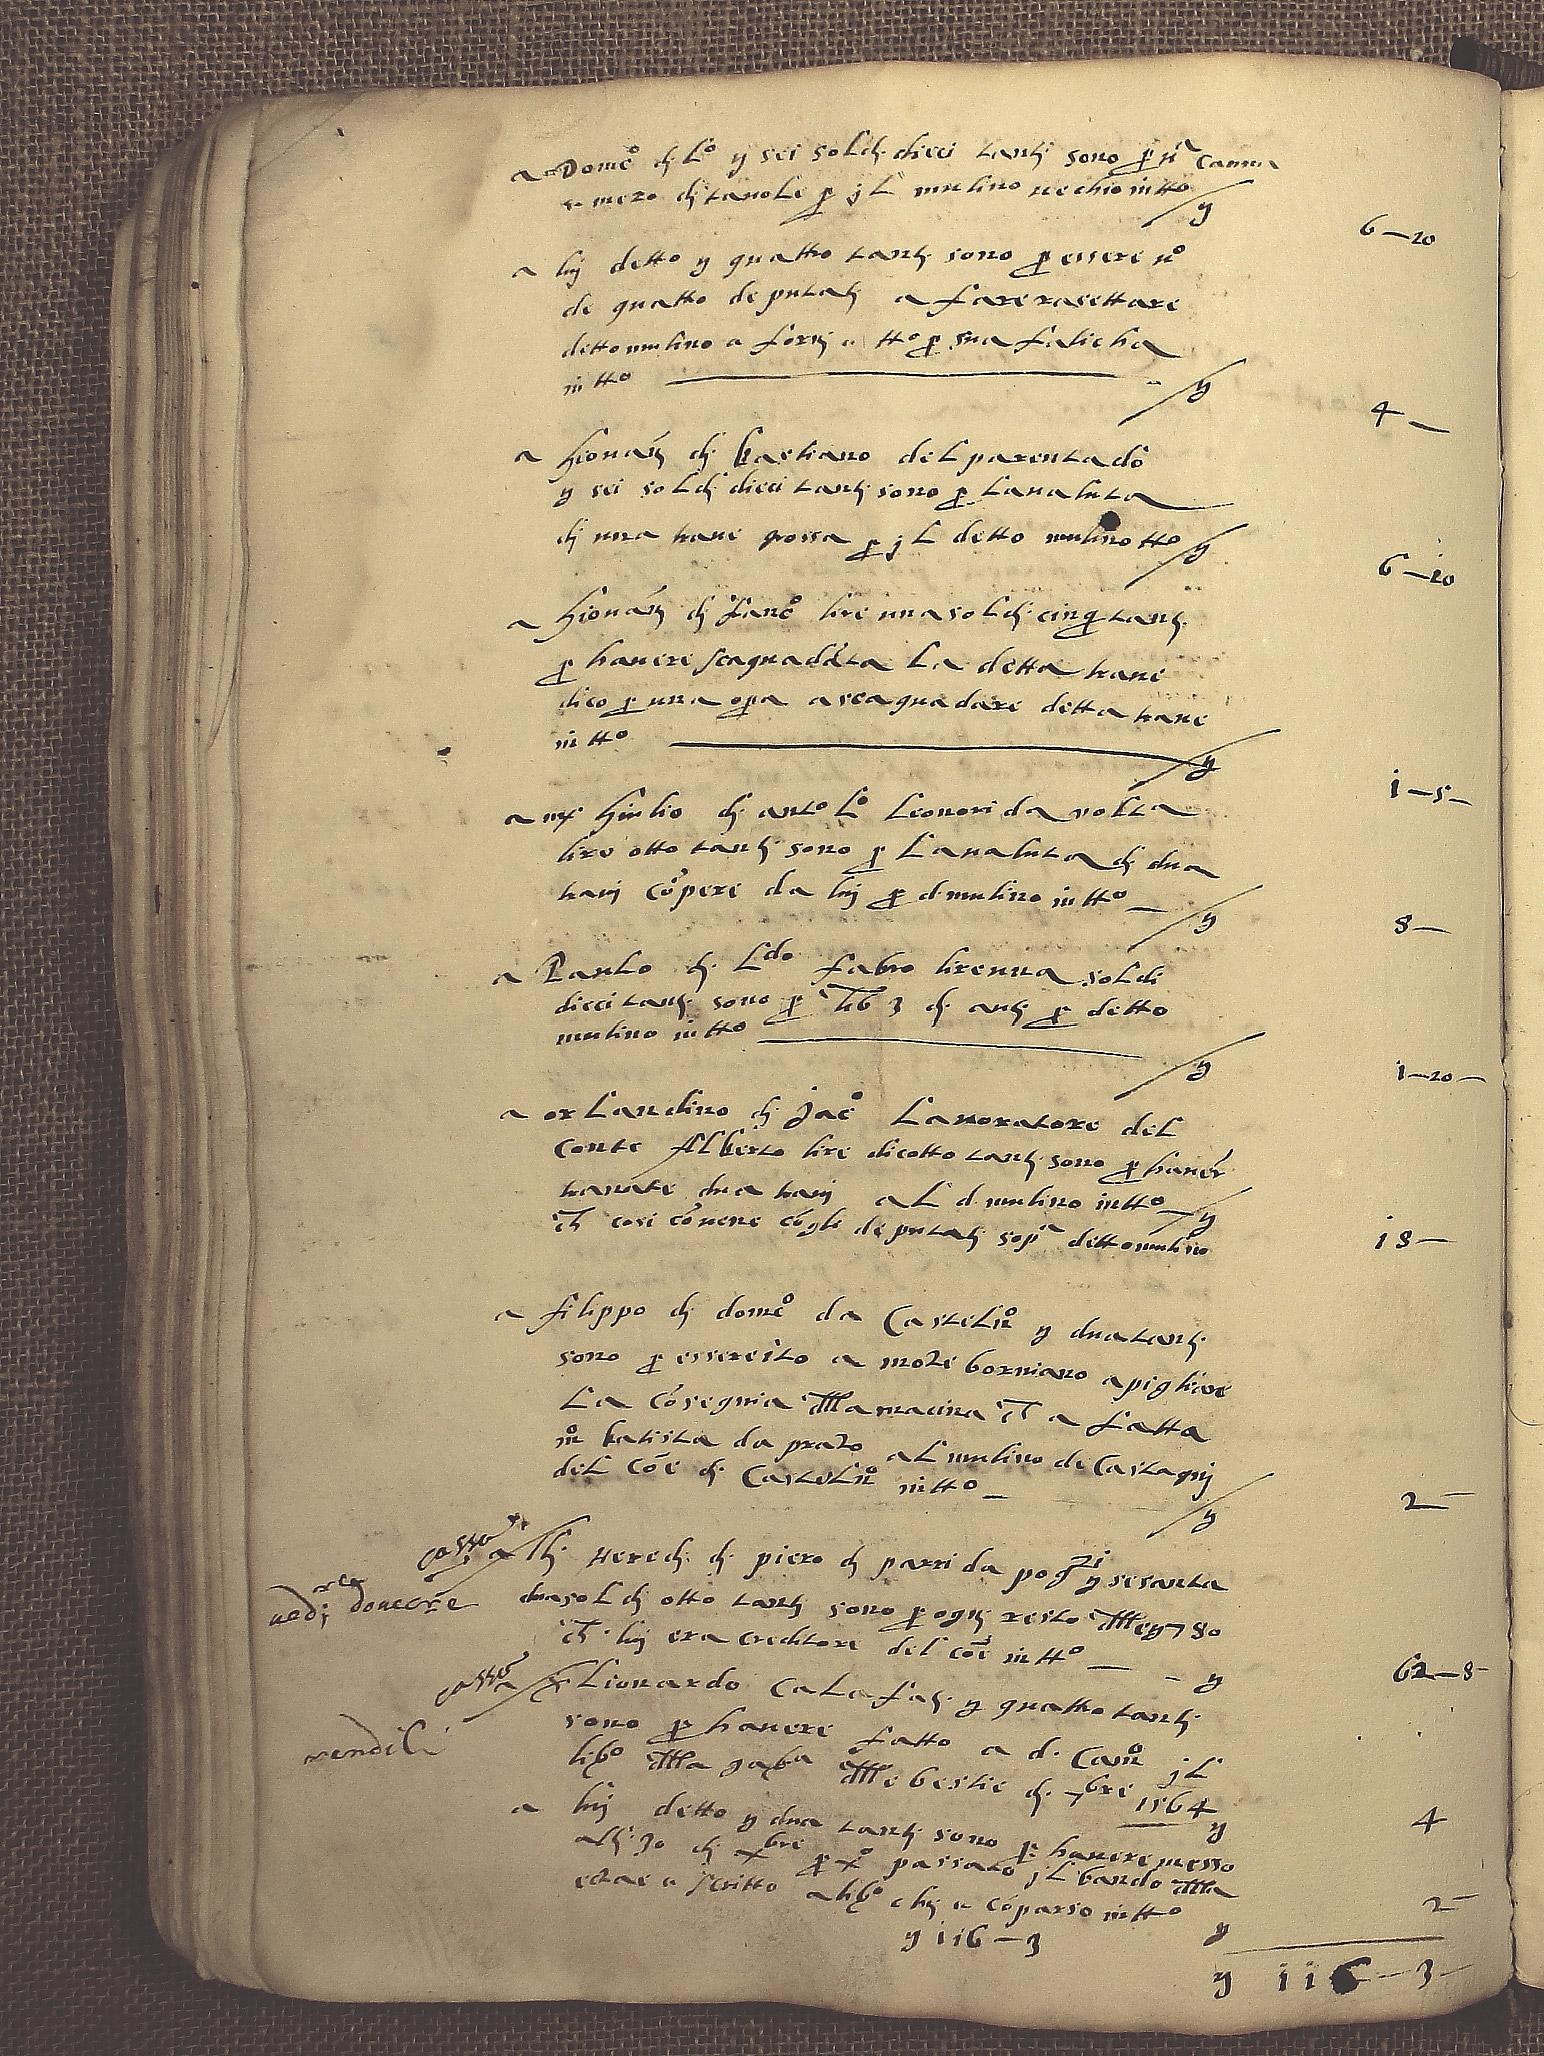 a Domco di Lo y sei soldi dieci tanti sono p una canna
e mezo di tavole p il mulino vechio in tto y 6–10
a lui detto y quattro tanti sono p essere uo
de quatto deputati a fare rasettare
detto mulino a forni e tto p sua faticha
in tto y 4–
a Giovani di bastiano del parentado
y sei soldi dieci tanti sono p la valuta
di una trave grossa p il detto mulino tto y 6–10
a Giovani di franco lire una soldi cinq tanti
p havere scaquadrata la detta trave
dico p una opa a scaquadare detta trave
in tto y 1–5–
a mr Giulio di anto Lo Leonori da volta
lire otto tanti sono p la valuta di dua
travi copere da lui p d mulino in tto y 8–
a Paulo di Ldo fabro lire una soldi
dieci tanti sono p lib 3 di auti p detto
mulino in tto y 1–10–
a orlandino di Jaco lavoratore del
conte Alberto lire dicotto tanti sono p haver
tranate dua travi al d mulino in tto y 18–
ch cosi covene cogli deputati sopa detto mulino
a filippo di domco da Casteluo y dua tanti
sono p essere ito a mote borniano a pigliare
la cosegnia dlla macina ch a fatta
mo batista da prato al mulino de Castagni
del coe di Casteluo in tto y 2–
casso a lli Heredi di piero di parri da pogzi y sesanta
vedi dovere
dua soldi otto tanti sono p ogni resto dlle y 780
ch lui era creditore del coe in tto y 62–8–
casso a Lionardo Calafati y quatto tanti
sono p havere fatto a d. Camo il
rendili
libo dlla gaba dlle bestie di 7bre 1564 y 4
a lui detto y dua tanti sono p havere messo
alli 30 di xbre p xo passato il bando dlla
e scritto a libo chi e coparso in tto y 2–
y 116–3
y 116–3–